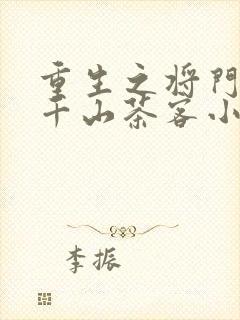 重生之将門
千山茶客小
李振